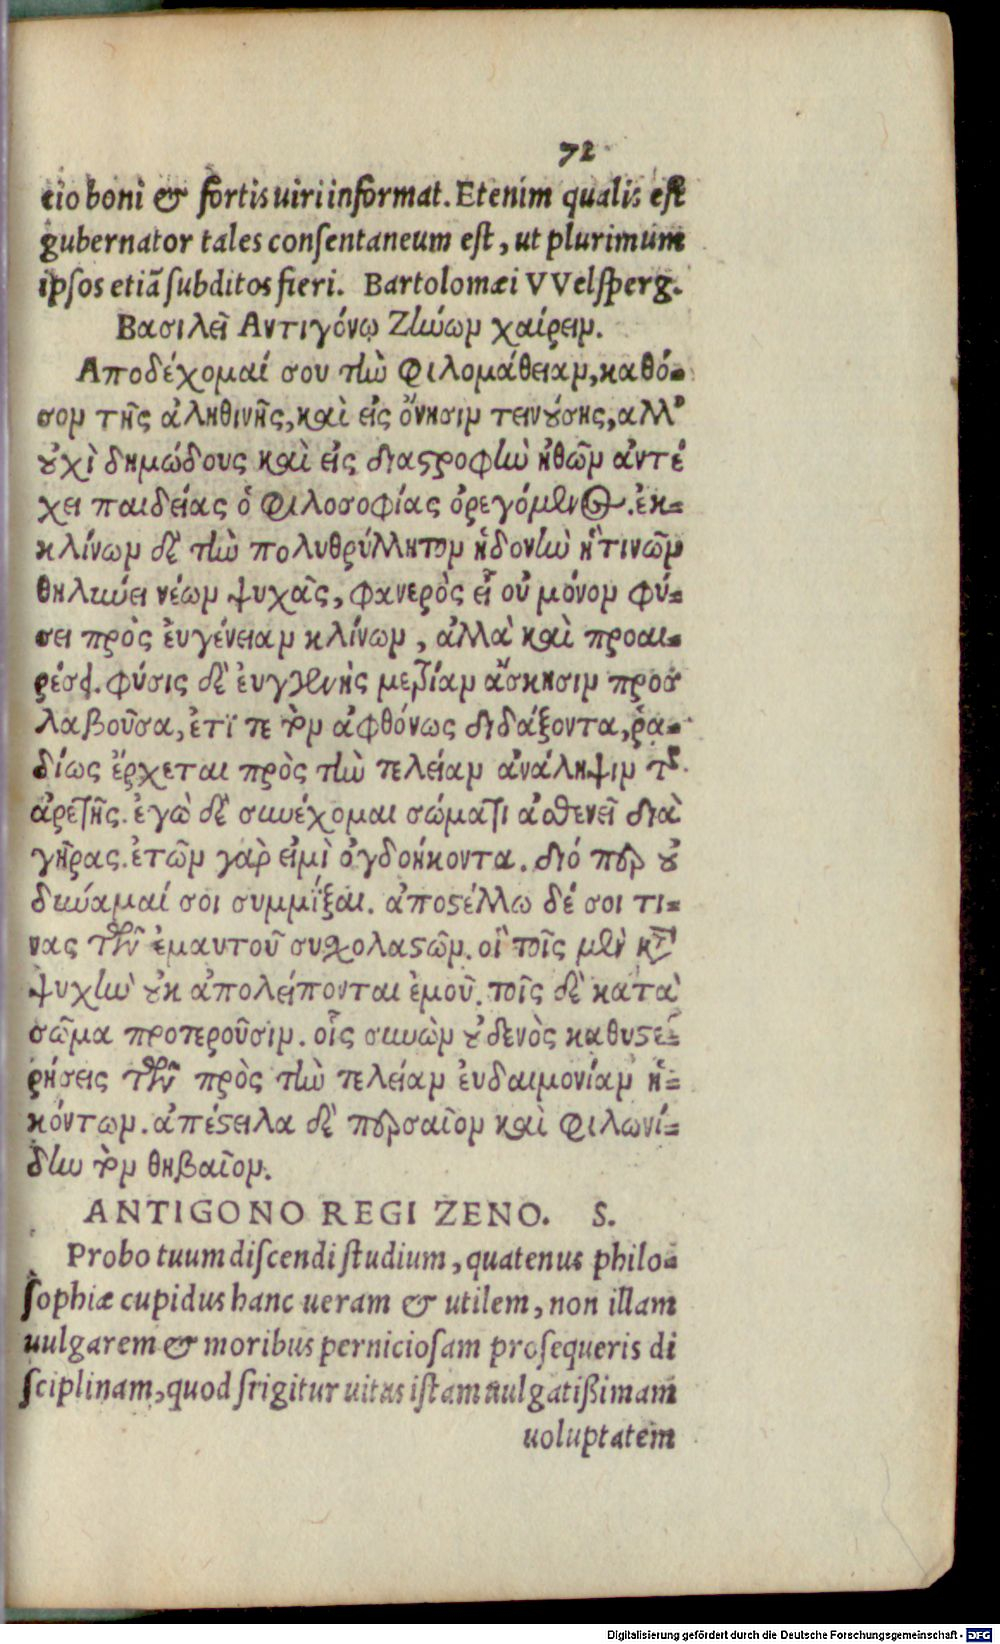 72
cio boni & fortis uiri informat. Etenim qualis est
gubernator tales consentaneum est, ut plurimum
ipsos etiā subditos fieri. Bartolomæi VVelsperg.
Βασιλεῖ Αντιγόνῳ Ζήνων χαίρειν.
Αποδέχομαί σου τὴν φιλομάθειαν, καθό-
σον τῆς ἀληθινῆς, καὶ εἰς ὄνησιν τεινούσης, αλλ'
οὐχὶ δημώδους καὶ εἰς διαστροφὴν ἠθῶν ἀντέ
χει παιδείας ὁ φιλοσοφίας ὀρεγόμενος. ἐκ-
κλίνων δὲ τὴν πολυθρύλλητον ἡδονὴν ἥ τινῶν
θηλύνει νέων ψυχὰς, φανερὸς εἶ οὐ μόνον φύ-
σει πρὸς ἐυγένειαν κλίνων, ἀλλὰ καὶ προαι-
ρέσει. φύσις δὲ ἐυγενὴς μετρίαν ἄσκησιν προσ
λαβοῦσα, ἐτϊ τε τὸν ἀφθόνως διδάξοντα, ῥα-
δίως ἔρχεται πρὸς τὴν τελείαν ἀνάληψιν τῆς
ἀρετῆς. ἐγὼ δὲ συνέχομαι σώματι ἀσθενεῖ διὰ
γῆρας. ἐτῶν γὰρ εἰμὶ ὀγδοήκοντα. διό περ οὐ
δύναμαί σοι συμμῖξαι. ἀποστέλλω δέ σοι τι-
νας τῶν ἐμαυτοῦ συχολαστῶν. οἳ τοῖς μὲν κατὰ
ψυχὴν οὐκ ἀπολείπονται ἐμοῦ. τοῖς δὲ κατὰ
σῶμα προτεροῦσιν. οἷς συνὼν οὐδενὸς καθυστε-
ρήσεις τῶν πρὸς τὴν τελείαν ἐυδαιμονίαν ἡ-
κόντων. ἀπέστειλα δὲ περσαῖον καὶ φιλωνί-
δην τὸν θηβαῖον.
ANTIGONO REGI ZENO. S.
Probo tuum discendi studium, quatenus philo-
sophiæ cupidus hanc ueram & utilem, non illam
uulgarem & moribus perniciosam prosequeris di
sciplinam, quod si igitur uitas istam uulgatißimam
uoluptatem
Digitalisierung gefördert durch die Deutsche Forschungsgemeinschaft - DFG